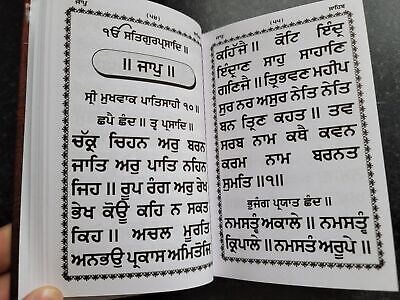 ਜਾਪੁ (੫੪)
ੴ ਸਤਿਗੁਰਪ੍ਰਸਾਦਿ ॥
॥ ਜਾਪੁ ॥
ਸ੍ਰੀ ਮੁਖਵਾਕ ਪਾਤਿਸਾਹੀ ੧੦॥
ਛਪੈ ਛੰਦ ॥ ਤ੍ਵ ਪ੍ਰਸਾਦਿ ॥
ਚੱਕ੍ਰ ਚਿਹਨ ਅਰੁ ਬਰਨ
ਜਾਤਿ ਅਰੁ ਪਾਤਿ ਨਹਿਨ
ਜਿਹ ॥ ਰੂਪ ਰੰਗ ਅਰੁ ਰੇਖ
ਭੇਖ ਕੋਊ ਕਹਿ ਨ ਸਕਤ
ਕਿਹ ॥ ਅਚਲ ਮੂਰਤਿ
ਅਨਭਉ ਪ੍ਰਕਾਸ ਅਮਿਤੋਜਿ
ਜਾਪੁ (੫੫) ਸਾਹਿਬ
ਕਹਿੱਜੈ ॥ ਕੋਟਿ ਇੰਦ੍ਰ
ਇੰਦ੍ਰਾਣ ਸਾਹੁ ਸਾਹਾਣਿ
ਗਣਿਜੈ ॥ ਤ੍ਰਿਭਵਣ ਮਹੀਪ
ਸੁਰ ਨਰ ਅਸੁਰ ਨੇਤਿ ਨੇਤਿ
ਬਨ ਤ੍ਰਿਣ ਕਹਤ ॥ ਤਵ
ਸਰਬ ਨਾਮ ਕਥੈ ਕਵਨ
ਕਰਮ ਨਾਮ ਬਰਨਤ
ਸੁਮਤਿ ॥੧॥
ਭੁਜੰਗ ਪ੍ਰਯਾਤ ਛੰਦ ॥
ਨਮਸਤ੍ਵੰ ਅਕਾਲੇ ॥ ਨਮਸਤ੍ਵੰ
ਕ੍ਰਿਪਾਲੇ ॥ ਨਮਸਤੰ ਅਰੂਪੇ ॥